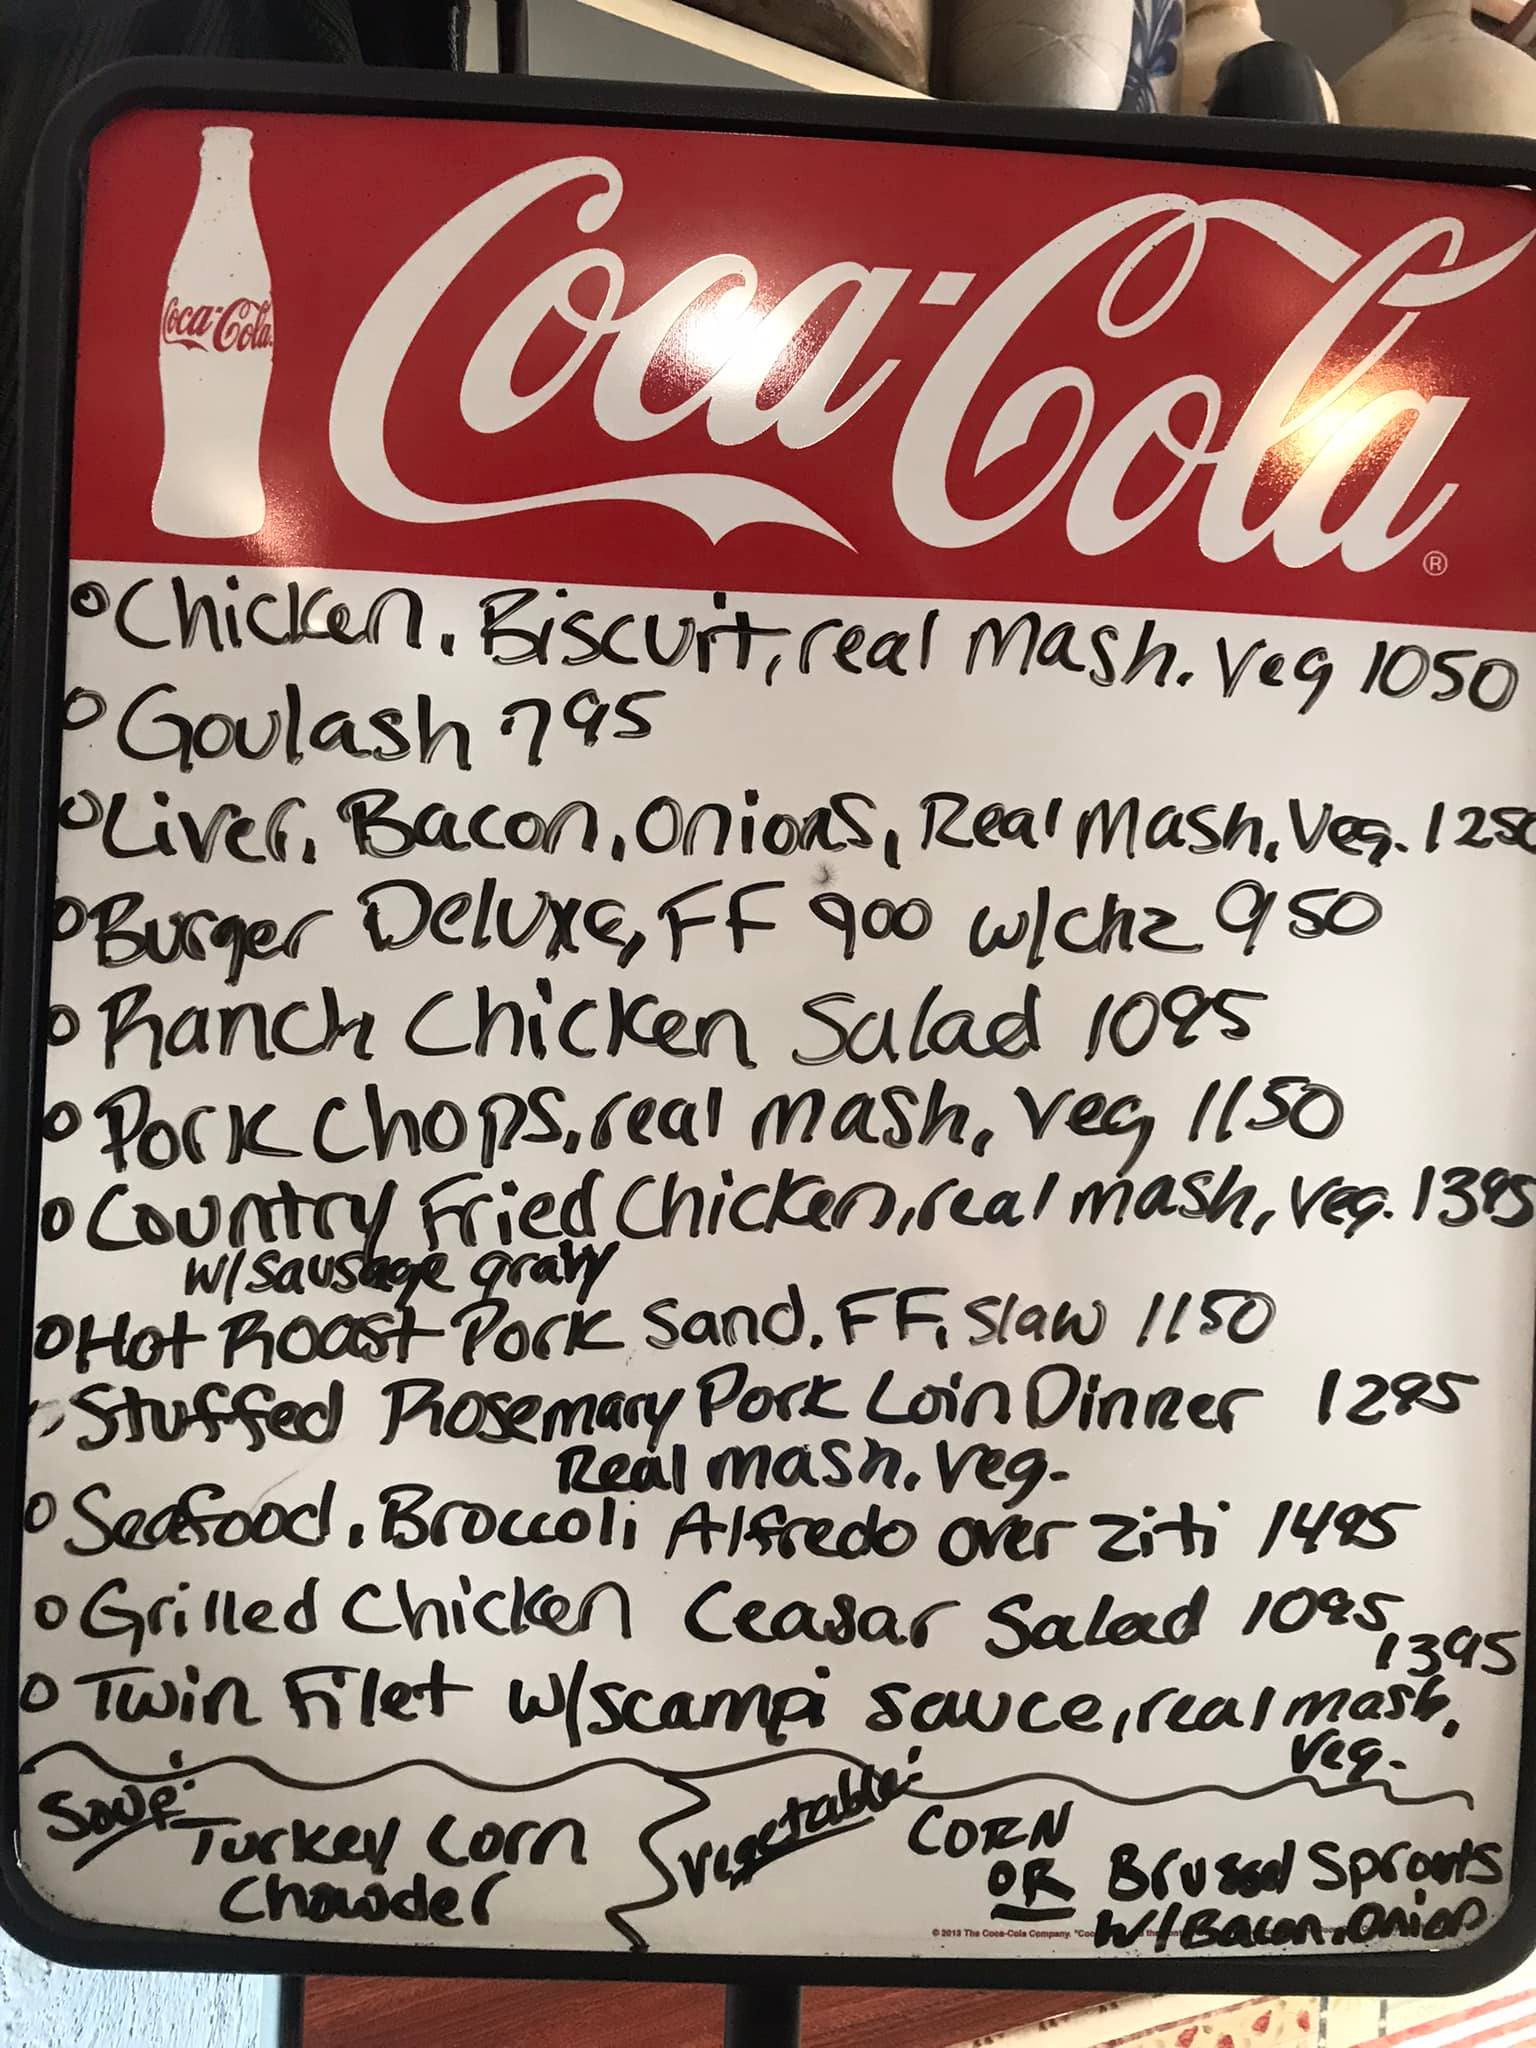 Coca-Cola
Coca-Cola®
Chicken, Biscuit, real mash. Veg 1050
Goulash 795
Liver, Bacon, Onions, Real Mash, Veg. 1250
Burger Deluxe, FF 900 w/chz 950
Ranch Chicken Salad 1095
Pork Chops, real mash, Veg 1150
Country Fried Chicken, real mash, Veg. 1395
w/sausage gravy
Hot Roast Pork Sand. FF, Slaw 1150
Stuffed Rosemary Pork Loin Dinner 1295
Real mash, Veg.
Seafood, Broccoli Alfredo over ziti 1495
Grilled Chicken Ceasar Salad 1095
1395
Twin Filet w/scampi sauce, real mash,
Veg.
Soup: Turkey Corn
Chowder
Vegetable: CORN
OR Brussel Sprouts
w/Bacon, Onion
© 2013 The Coca-Cola Company.